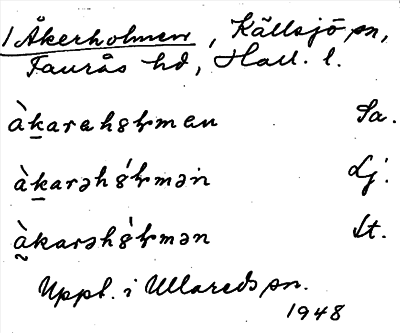 1 Åkerholmen, Källsjö sn,
Faurås hd, Hall. l.
àkarahȣɫmen Sa.
àkarəhȣ́ɫmən Lj.
àkarəhȣ́ɫmən Lt.
Uppt. i Ullareds sn.
1948